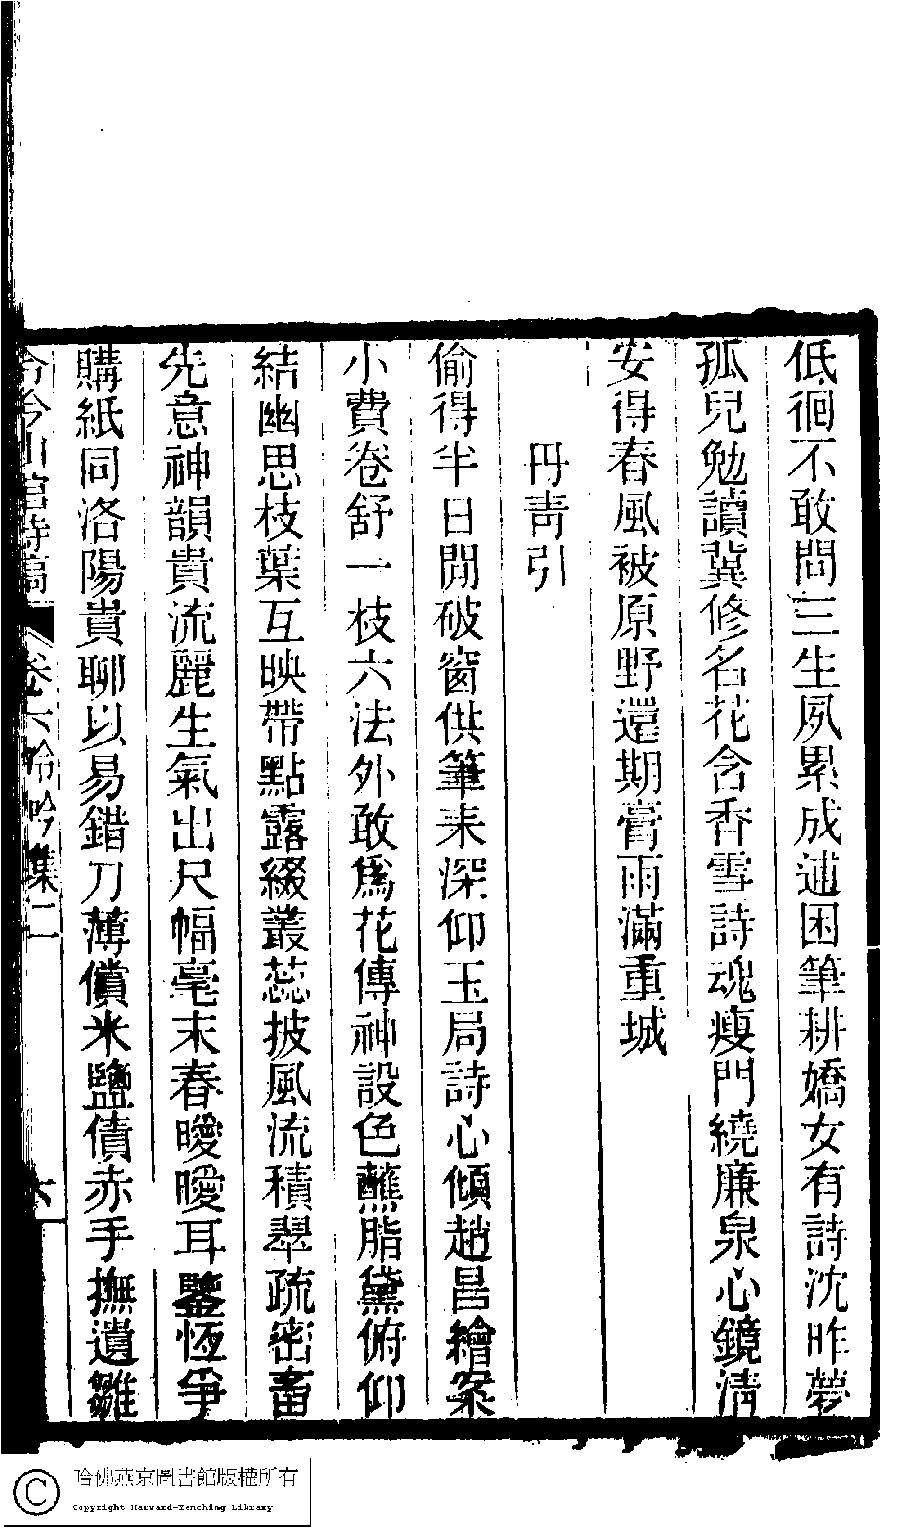 低徊不敢問三生夙累成逋困筆耕嬌女有詩沈昨夢
孤兒勉讀冀修名花含香雪詩魂瘦門繞廉泉心鏡清
安得春風被原野還期膏雨滿重城
丹青引
偷得半日閒破窗供筆耒深仰玉局詩心傾趙昌繪案
小費卷舒一枝六法外敢爲花傳神設色蘸脂黛俯仰
結幽思枝葉互映帶點露綴叢蕊披風流積翠疏密畜
先意神韻貴流麗生氣出尺幅毫末春曖曖耳鑒恆爭
購紙同洛陽貴聊以易錯刀薄償米鹽債赤手撫遺雛
冷吟山館詩稿 卷六 冷吟集二 六
哈佛燕京圖書館版權所有
Copyright Harvard-Yenching Library